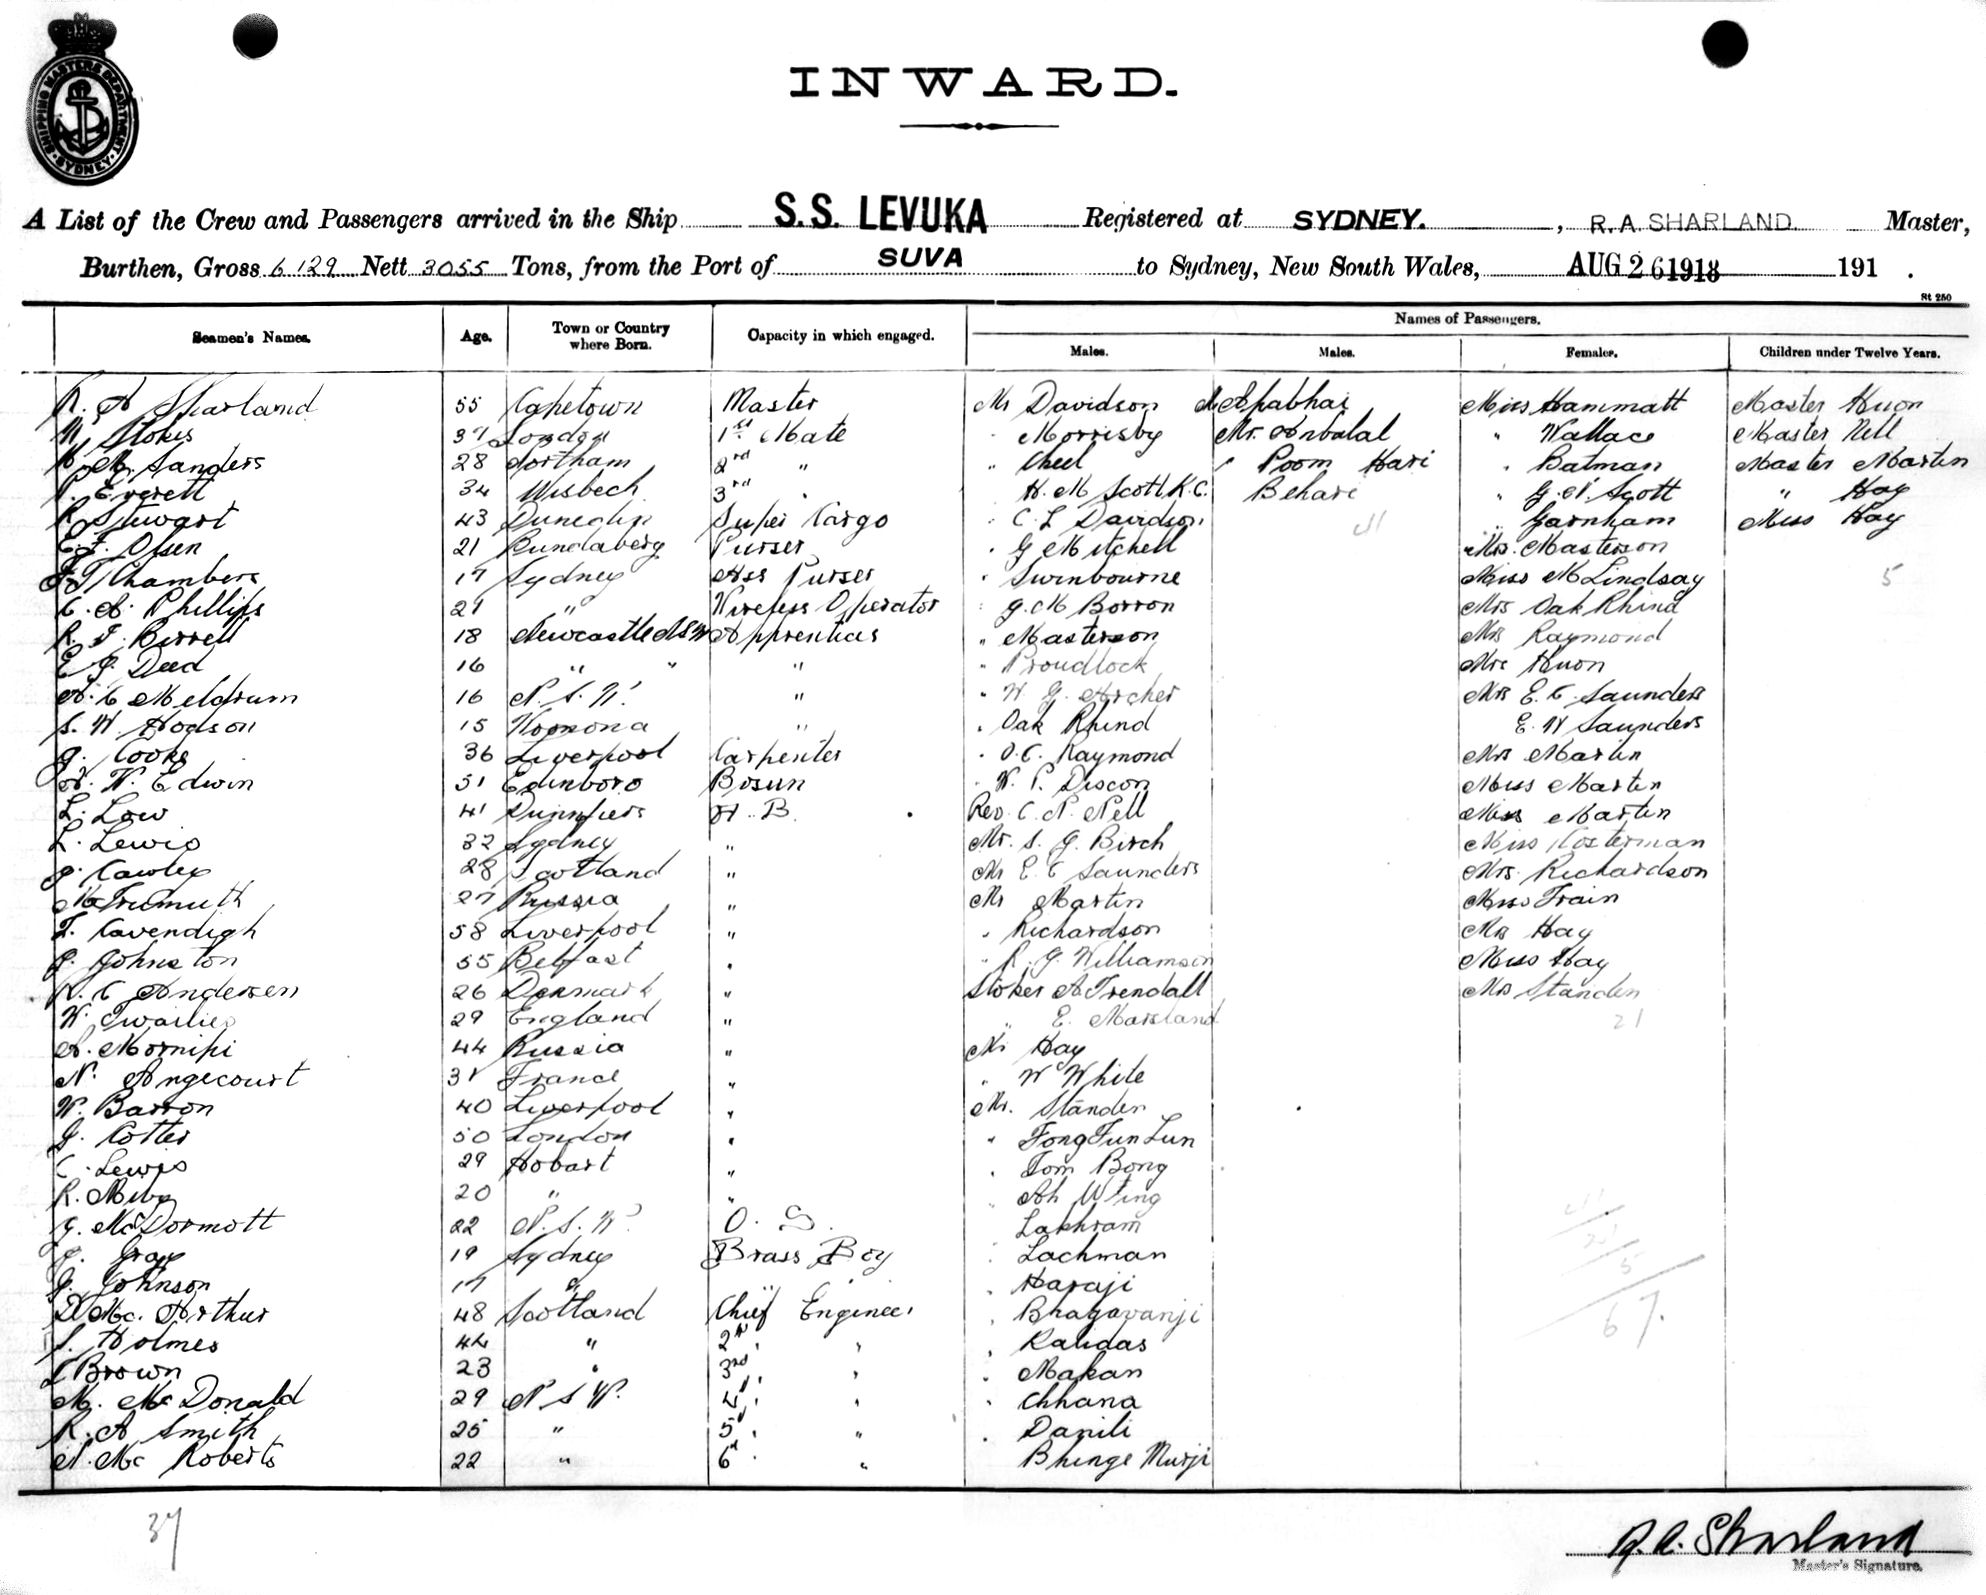 SHIPPING MASTERS DEPARTMENT
SYDNEY
INWARD.
A List of the Crew and Passengers arrived in the Ship S.S. LEVUKA Registered at SYDNEY. , R.A. SHARLAND. Master,
Burthen, Gross 6129 Nett 3055 Tons, from the Port of SUVA to Sydney, New South Wales, AUG 26 1918 191 .
St 250
Seamen's Names. Age. Town or Country where Born. Capacity in which engaged. Names of Passengers.
Males. Males. Females. Children under Twelve Years.
R. A Sharland 55 Capetown Master Mr Davidson Miss Hammatt Master Huon
Stokes 37 London 1st Mate " Morrisby Mr. " Wallace Master Nell
Sanders 28 2nd " " Cheel " Poom Hari " Batman Master Martin
Everett 34 Wisbech 3rd " H. M Scott K.C. Behari " Scott " Hay
R Stewart 43 Dunedin Super Cargo " C. L Davidson 41 " Garnham Miss Hay
Olsen 21 Bundaberg Purser " G Mitchell Mrs. Masterson
Chambers 17 Sydney Ass Purser " Swinbourne Miss M Lindsay 5
C. A. Phillips 21 " Wireless Operator " G. M Borron Mrs Oak Rhind
R. J. Birrell 18 Newcastle NSW Apprentices " Masterson Mrs Raymond
E J. Deed 16 " " " " Proudlock Mrs Huon
A. C Meldrum 16 N. S. W. " " W. G. Archer Mrs E. C. Saunders
S. W. Hodson 15 " " Oak Rhind E. W Saunders
J. Cooke 36 Liverpool Carpenter " O. C. Raymond Mrs Martin
W. Edwin 51 Edinboro Bosun " W. P. Discon Miss Martin
L. Low 41 A. B. Rev. C. N. Nell Miss Martin
L. Lewis 32 Sydney " Mr. S. G. Birch Miss Kosterman
J. Cawley 28 Scotland " Mr E C Saunders Mrs. Richardson
27 Russia " Mr Martin Miss Train
T. Cavendigh 58 Liverpool " " Richardson Mrs Hay
J. Johnston 55 Belfast " " R. G. Williamson Miss Hay
R. C Andersen 26 Denmark " Stoker A Trendall Mrs Standen
W. 29 England " " E. Marsland 21
A. 44 Russia " Mr Hay
N. Angecourt 31 France " " W White
W. Barron 40 Liverpool " Mr. Standen
J. Cotter 50 London " " Fong Fun Lun
C. Lewis 29 Hobart " " Tom Bong
R. 20 " " " Ah
J. McDormott 22 N. S. W. O. S. Lakhram
J. Gray 19 Sydney Brass Boy " Lachman
J. Johnson 17 " " Haraji
D Mc. Arthur 48 Scotland Chief Engineer " Bhagavanji
S. Holmes 44 " 2nd " " Kalidas
Brown 23 " 3rd " " Makan
M. McDonald 29 N S W. 4th " " Chhana
R. A Smith 25 " 5th " " Danili
N. Mc Roberts 22 " 6th " Bhinge Murji
41
21
5
67.
37
R. A. Sharland
Master's Signature.